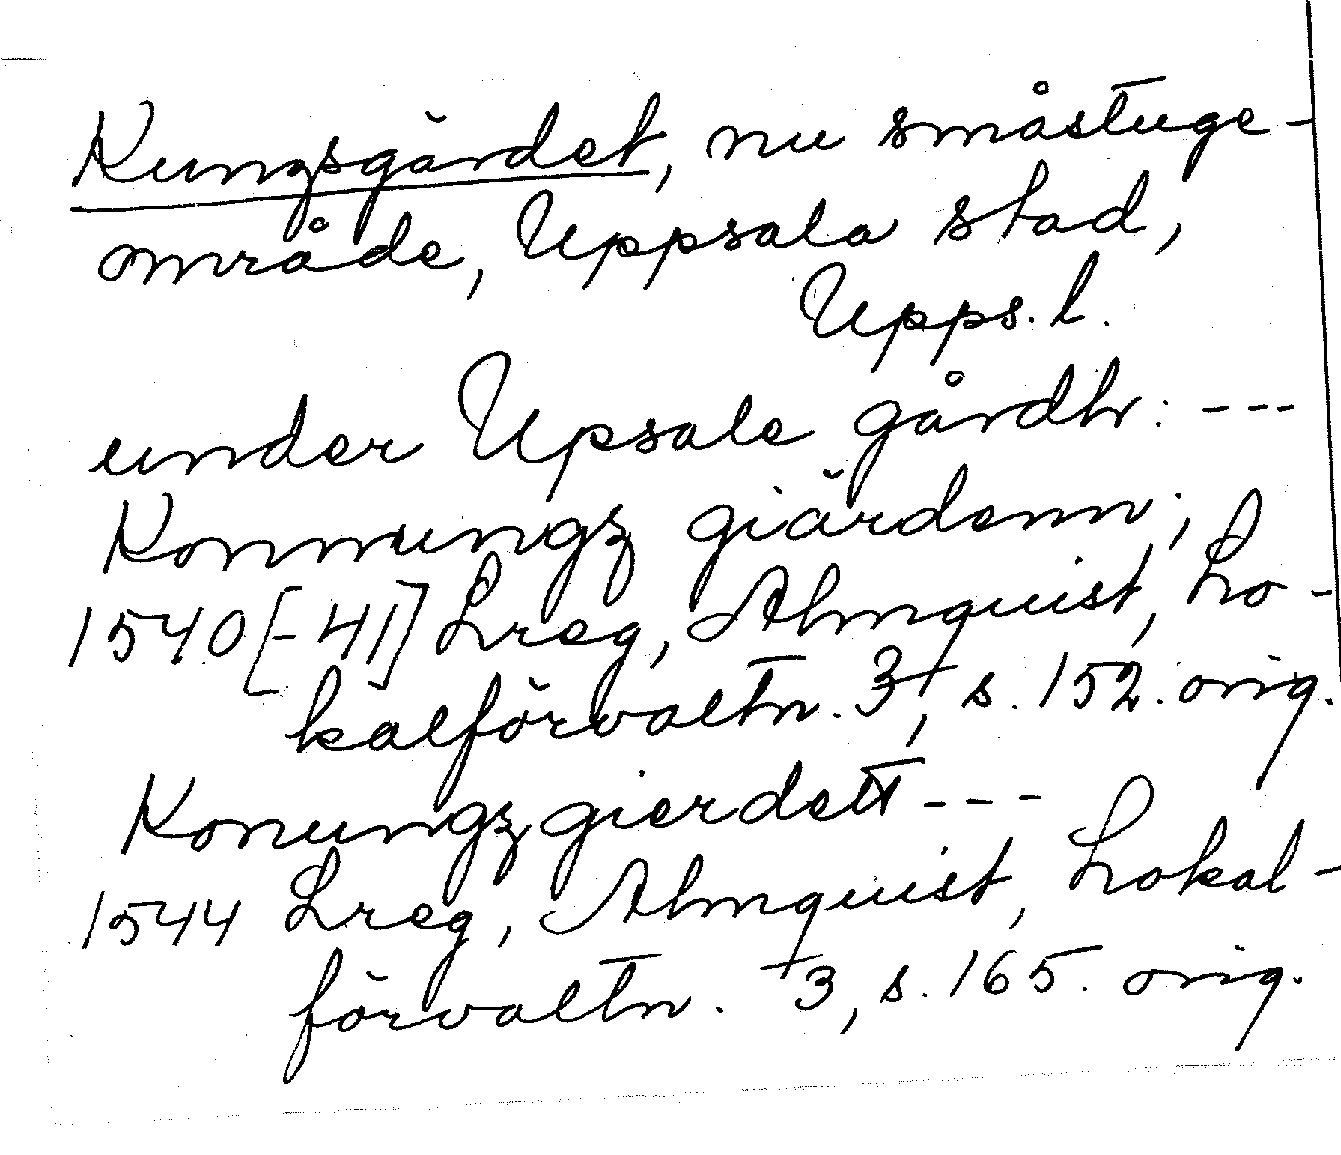 Kungsgärdet, nu småstuge-
område, Uppsala stad,
Upps. l.
under Upsale gårdh: ---
Konnungz giärdenn;
1540[-41] Lreg, Almquist, Lo-
kalförvaltn. 3, s. 152. orig.
Konungz gierdett ---
1544 Lreg, Almquist, Lokal-
förvaltn. 3, s. 165. orig.